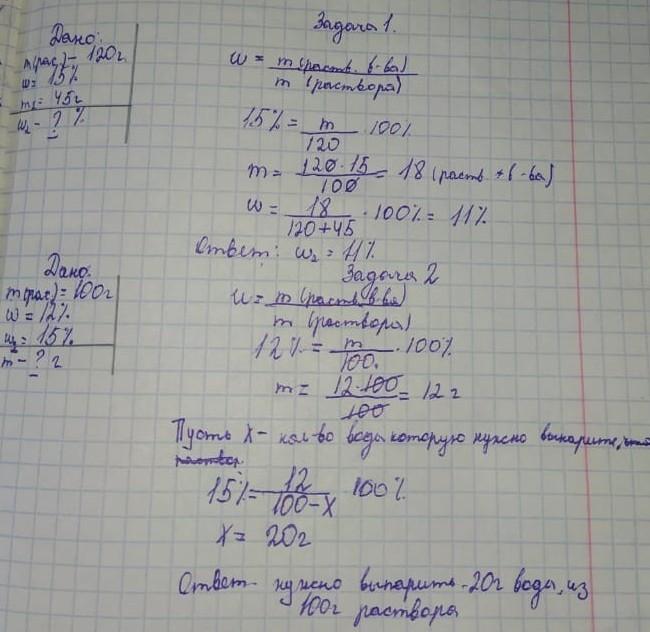 Задача 1.
Дано:
m(рас.) - 120г
ω = 15%
m₁ = 45г
ω₂ - ? %
ω = m(раств. в-ва) / m (раствора)
15% = m / 120 · 100%
m = 120·15 / 100 = 18 (раств. в-ва)
ω = 18 / 120+45 · 100% = 11%
Ответ: ω₂ = 11%
Задача 2
Дано:
m(рас) = 100г
ω = 12%
ω₂ = 15%
m - ? г
ω = m(раств. в-ва) / m (раствора)
12% = m / 100. · 100%
m = 12·100 / 100 = 12 г
Пусть X - кол-во воды которую нужно выпарить,
раствор
15% = 12 / 100-X 100%
X = 20г
Ответ - нужно выпарить - 20г воды, из
100г раствора